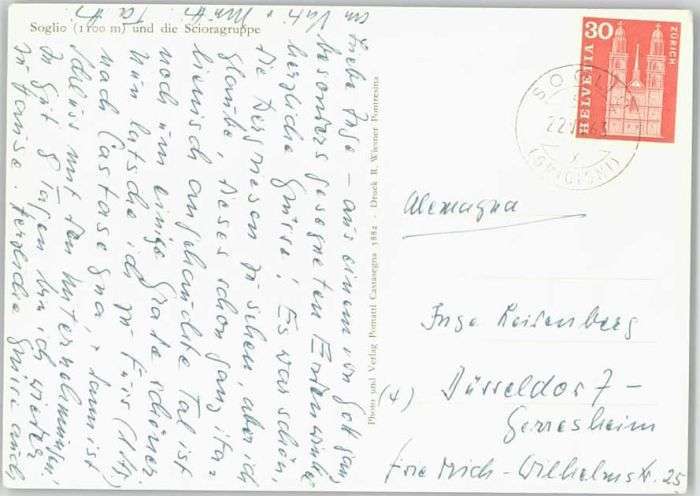 Soglio (1100 m) und die Scioragruppe
Liebe Inge – aus einem von Gott ganz
besonders gesegneten Erdenwinkel
herzliche Grüsse! Es war schön,
die Bergriesen zu sehen, aber ich
glaube, dieses schon ganz ita-
lienisch angehauchte Tal ist
noch um einige Grade schöner.
Nun latsche ich zu Fuss
nach Castasegna, dann ist
Schluss mit den Unternehmungen,
In gut 8 Tagen bin ich wieder
zu Hause. Herzliche Grüsse auch
an
Photo und Verlag Pomatti Castasegna 3882 - Druck R. Wiesner Pontresina
HELVETIA
30
ZÜRICH
SOGLIO
(GRIGIONI)
Alemagna
Inge Reisenberg
(4) Düsseldorf –
Gerresheim
Friedrich-Wilhelmstr. 25